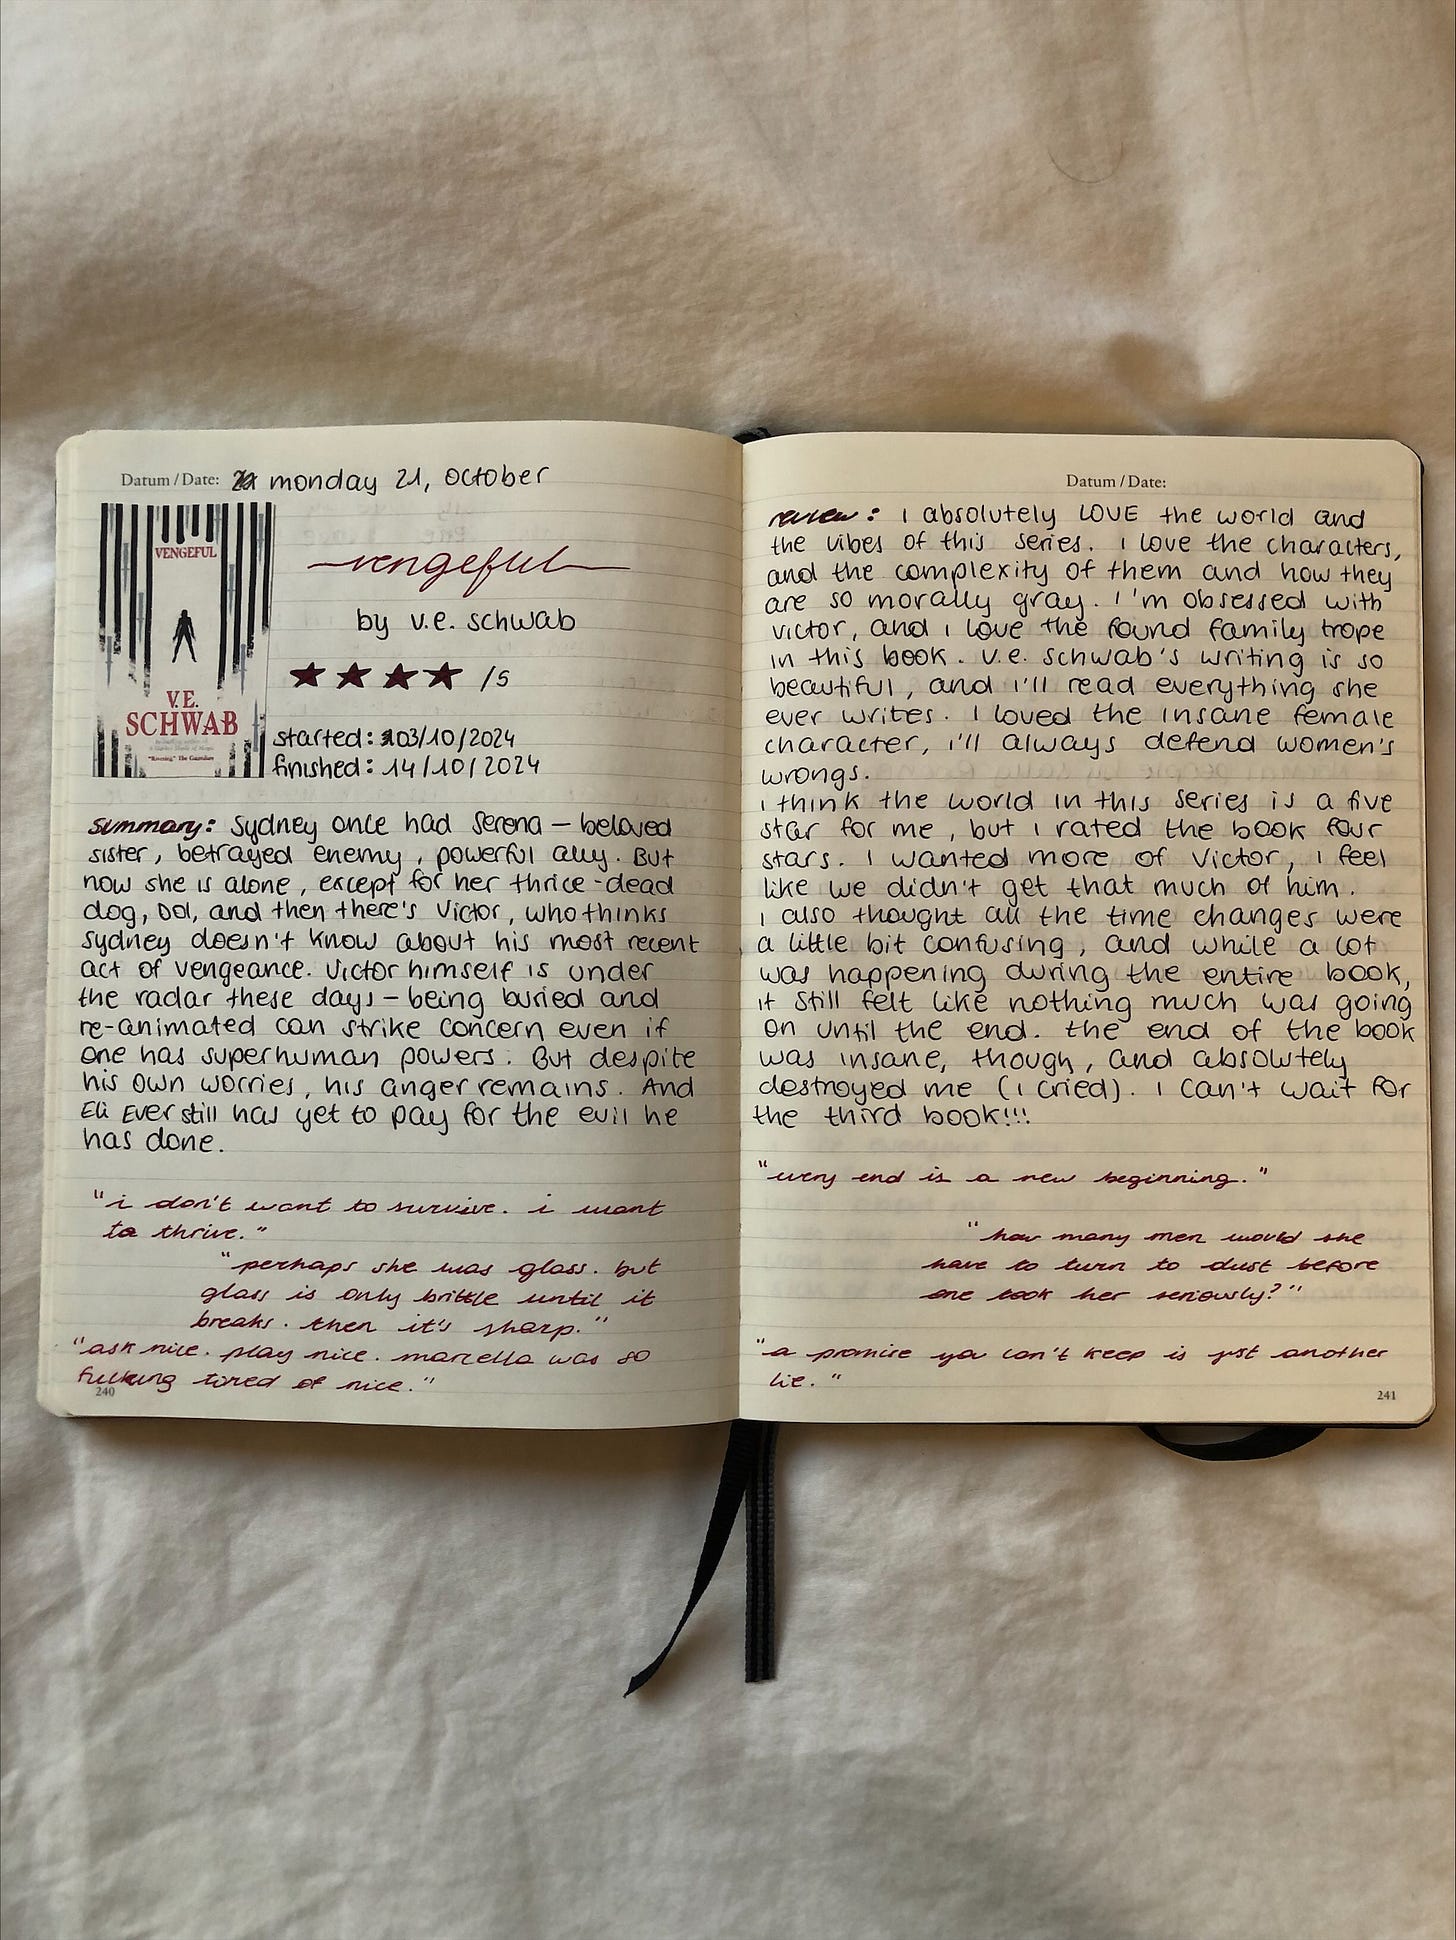 Datum / Date: monday 21, october
VENGEFUL
V.E.
SCHWAB
"Riveting." The Guardian
vengeful
by v.e. schwab
★★★★ /5
started: 03/10/2024
finished: 14/10/2024
summary: Sydney once had Serena – beloved
sister, betrayed enemy, powerful ally. But
now she is alone, except for her thrice-dead
dog, Dol, and then there's Victor, who thinks
Sydney doesn't know about his most recent
act of vengeance. Victor himself is under
the radar these days – being buried and
re-animated can strike concern even if
one has superhuman powers. But despite
his own worries, his anger remains. And
Eli Ever still has yet to pay for the evil he
has done.
"i don't want to survive. i want
to thrive."
"perhaps she was glass. but
glass is only brittle until it
breaks. then it's sharp."
"ask nice. play nice. marcella was so
fucking tired of nice."
240
Datum / Date:
review: i absolutely LOVE the world and
the vibes of this series. i love the characters,
and the complexity of them and how they
are so morally gray. i'm obsessed with
victor, and i love the found family trope
in this book. v.e. schwab's writing is so
beautiful, and i'll read everything she
ever writes. i loved the insane female
character, i'll always defend women's
wrongs.
i think the world in this series is a five
star for me, but i rated the book four
stars. i wanted more of victor, i feel
like we didn't get that much of him.
i also thought all the time changes were
a little bit confusing, and while a lot
was happening during the entire book,
it still felt like nothing much was going
on until the end. the end of the book
was insane, though, and absolutely
destroyed me (i cried). i can't wait for
the third book!!!
"every end is a new beginning."
"how many men would she
have to turn to dust before
one took her seriously?"
"a promise you can't keep is just another
lie."
241